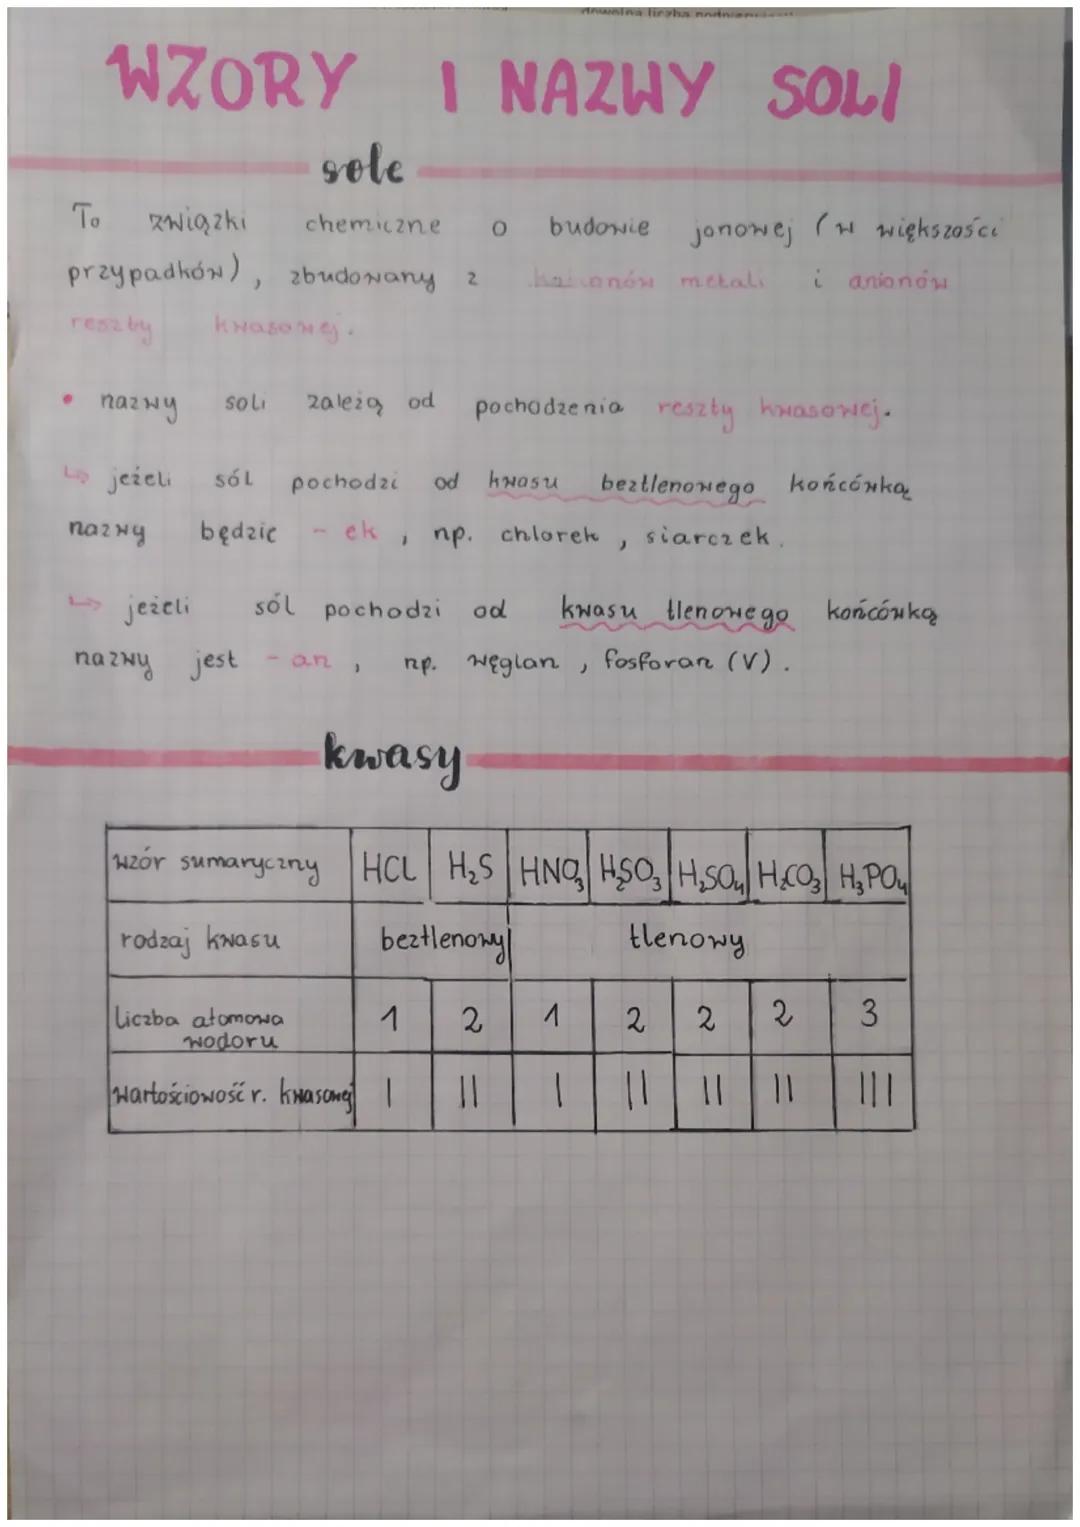 WZORY I NAZWY SOLI
sole
To związki chemiczne o budowie jonowej (w większości
przypadków), zbudowany z kationów metali i anionów
reszty kwasowej.
• nazwy soli zależą od pochodzenia reszty kwasowej.
↳ jeżeli sól pochodzi od kwasu beztlenowego końcówką
nazwy będzie - ek, np. chlorek, siarczek.
↳ jeżeli sól pochodzi od kwasu tlenowego końcówką
nazwy jest - an, np. węglan, fosforan (V).
kwasy
wzór sumaryczny HCL H₂S HNO₃ H₂SO₃ H₂SO₄ H₂CO₃ H₃PO₄
rodzaj kwasu beztlenowy tlenowy
liczba atomowa
wodoru 1 2 1 2 2 2 3
wartościowość r. kwasowej I II I II II II III